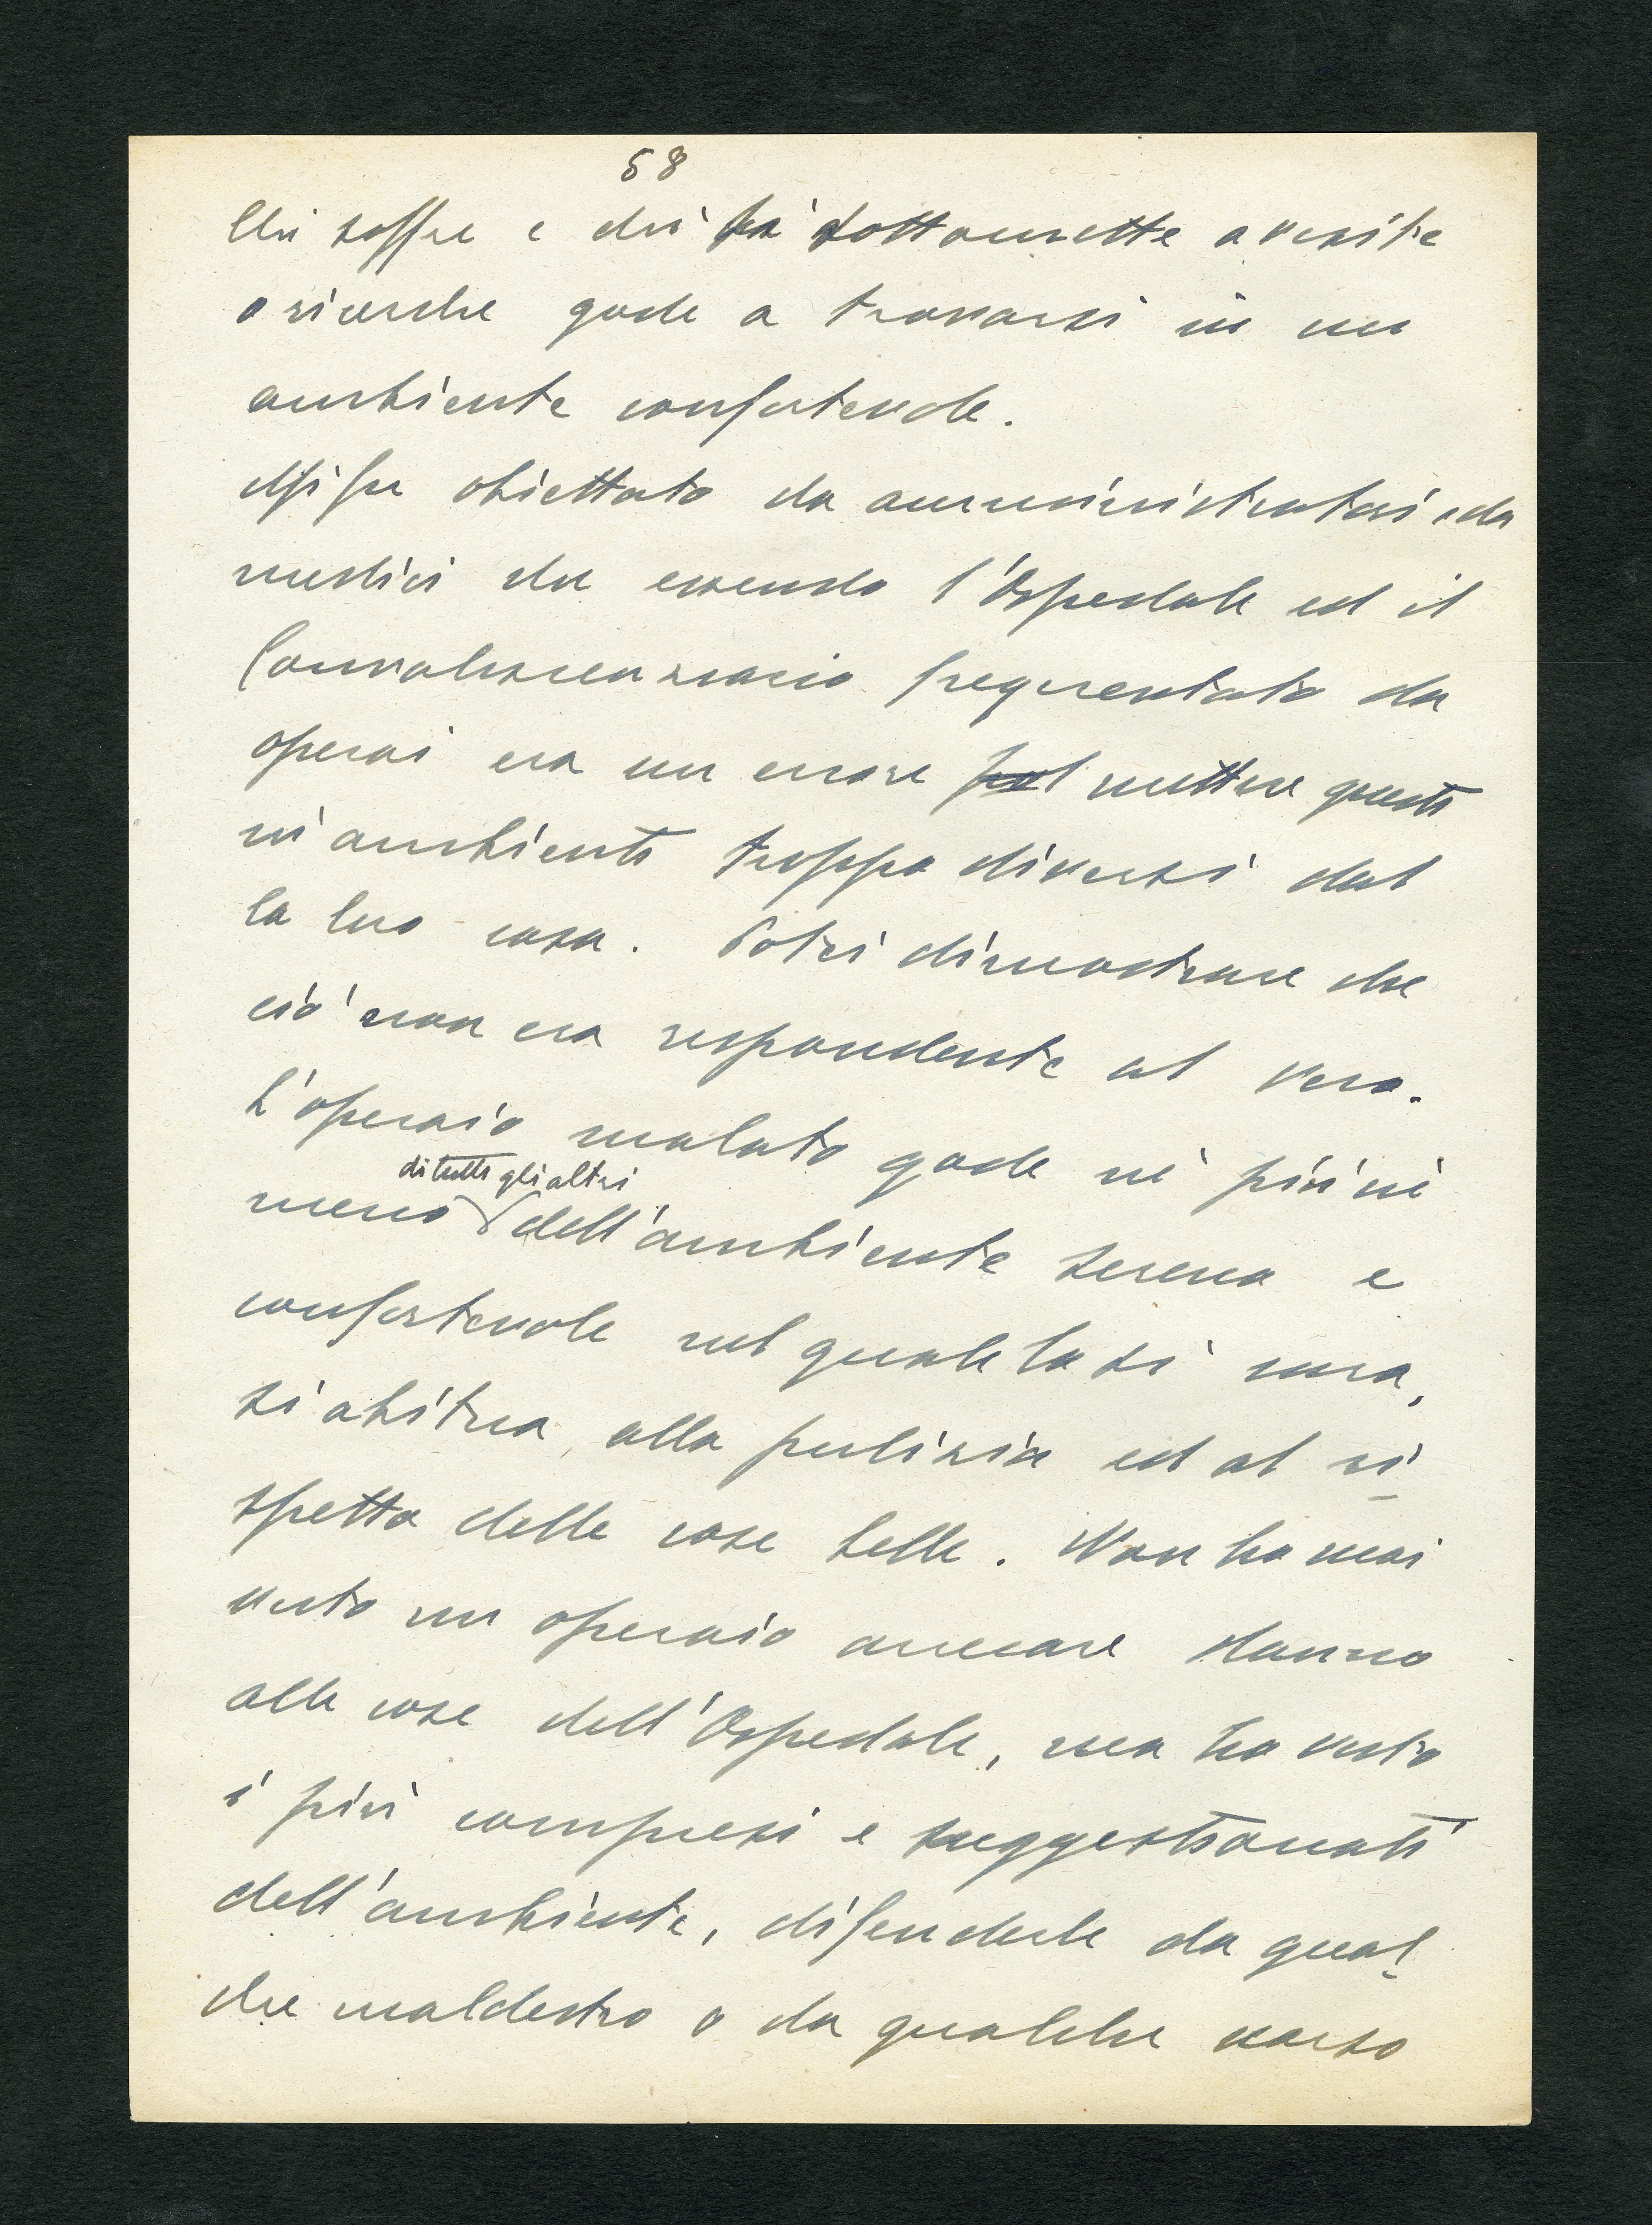 58
Chi soffre e chi si sottomette a visite
o ricerche gode a trovarsi in un
ambiente confortevole.
Mi fu obiettato da amministratori e da
medici che essendo l'Ospedale ed il
Convalescenziario frequentato da
operai era un errore mettere questi
in ambienti troppo diversi dal
la loro casa. Potei dimostrare che
ciò non era rispondente al vero.
L'operaio malato gode nè più nè
meno di tutti gli altri dell'ambiente sereno e
confortevole nel quale lo si cura,
si abitua alla pulizia ed al ri
spetto delle cose belle. Non ho mai
visto un operaio arrecare danno
alle cose dell'Ospedale, ma ho visto
i più compresi e suggestionati
dell'ambiente, difenderle da qual
che maldestro o da qualche